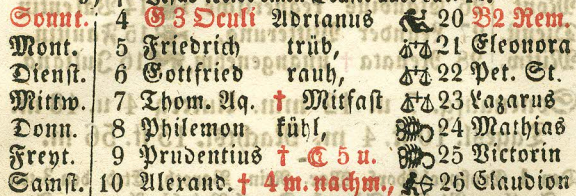 Sonnt. 4 G 3 Oculi Adrianus 20 B2 Rem.
Mont. 5 Friedrich trüb, 21 Eleonora
Dienst. 6 Gottfried rauh, 22 Pet. St.
Mittw. 7 Thom. Aq. † Mitfast 23 Lazarus
Donn. 8 Philemon kühl, 24 Mathias
Freyt. 9 Prudentius † ☾ 5 u. 25 Victorin
Samst. 10 Alexand. † 4 m. nachm., 26 Claudion